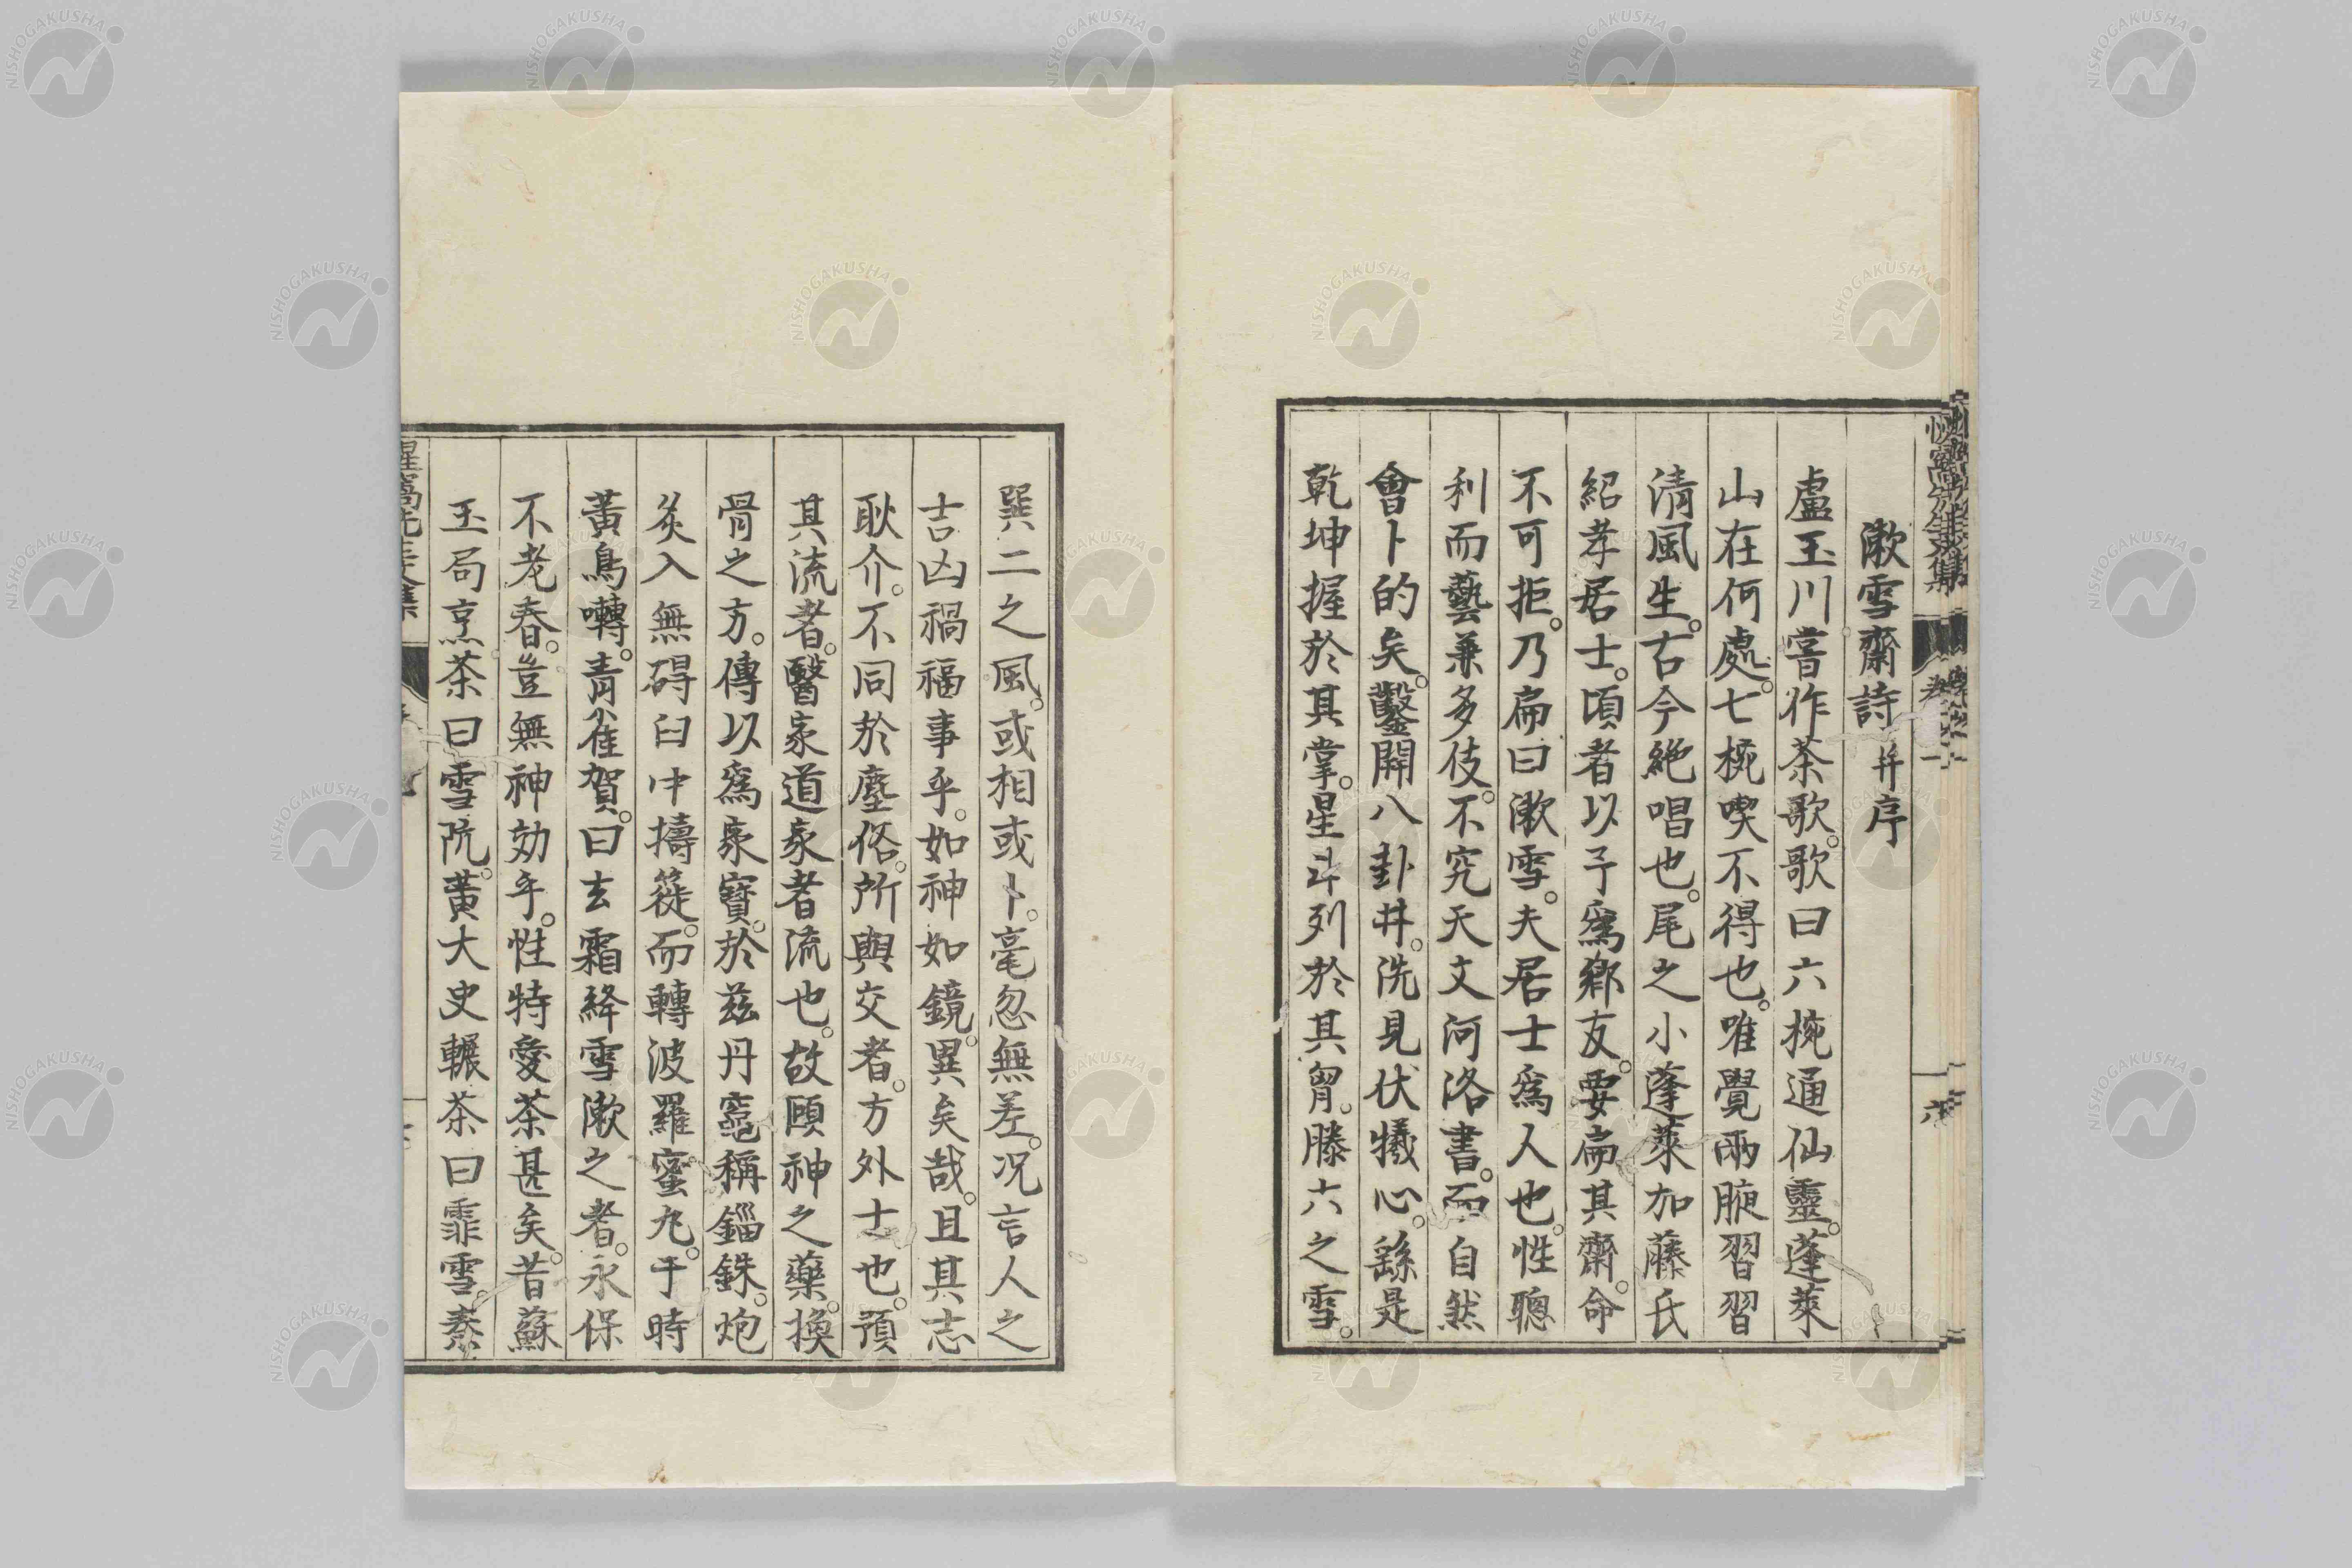 漱雪齋詩并序
盧玉川嘗作茶歌。歌曰六椀通仙靈。蓬萊
山在何處。七椀喫不得也。唯覺兩腋習習
清風生。古今絶唱也。尾之小蓬萊加藤氏
紹孝居士。頃者以予爲鄉友。要扁其齋。命
不可拒。乃扁曰漱雪。夫居士爲人也。性聰
利而藝兼多伎。不究天文河洛書。而自然
會卜的矣。鑿開八卦井。洗見伏犧心。繇是
乾坤握於其掌。星斗列於其胷。滕六之雪。
巽二之風。或相或卜。毫忽無差。况言人之
吉凶禍福事乎。如神如鏡。異矣哉。且其志
耿介。不同於塵俗。所與交者。方外士也。預
其流者。醫家道家者流也。故頤神之藥。換
骨之方。傳以爲家寳。於兹丹竈稱錙銖。炮
炙入無碍臼中擣簁。而轉波羅蜜丸。于時
黃鳥囀。青雀賀。曰玄霜絳雪漱之者。永保
不老春。豈無神効乎。性特愛茶甚矣。昔蘇
玉局烹茶曰雪阬。黃大史輾茶曰霏雪。秦
惺窩先生文集
六
NISHOGAKUSHA